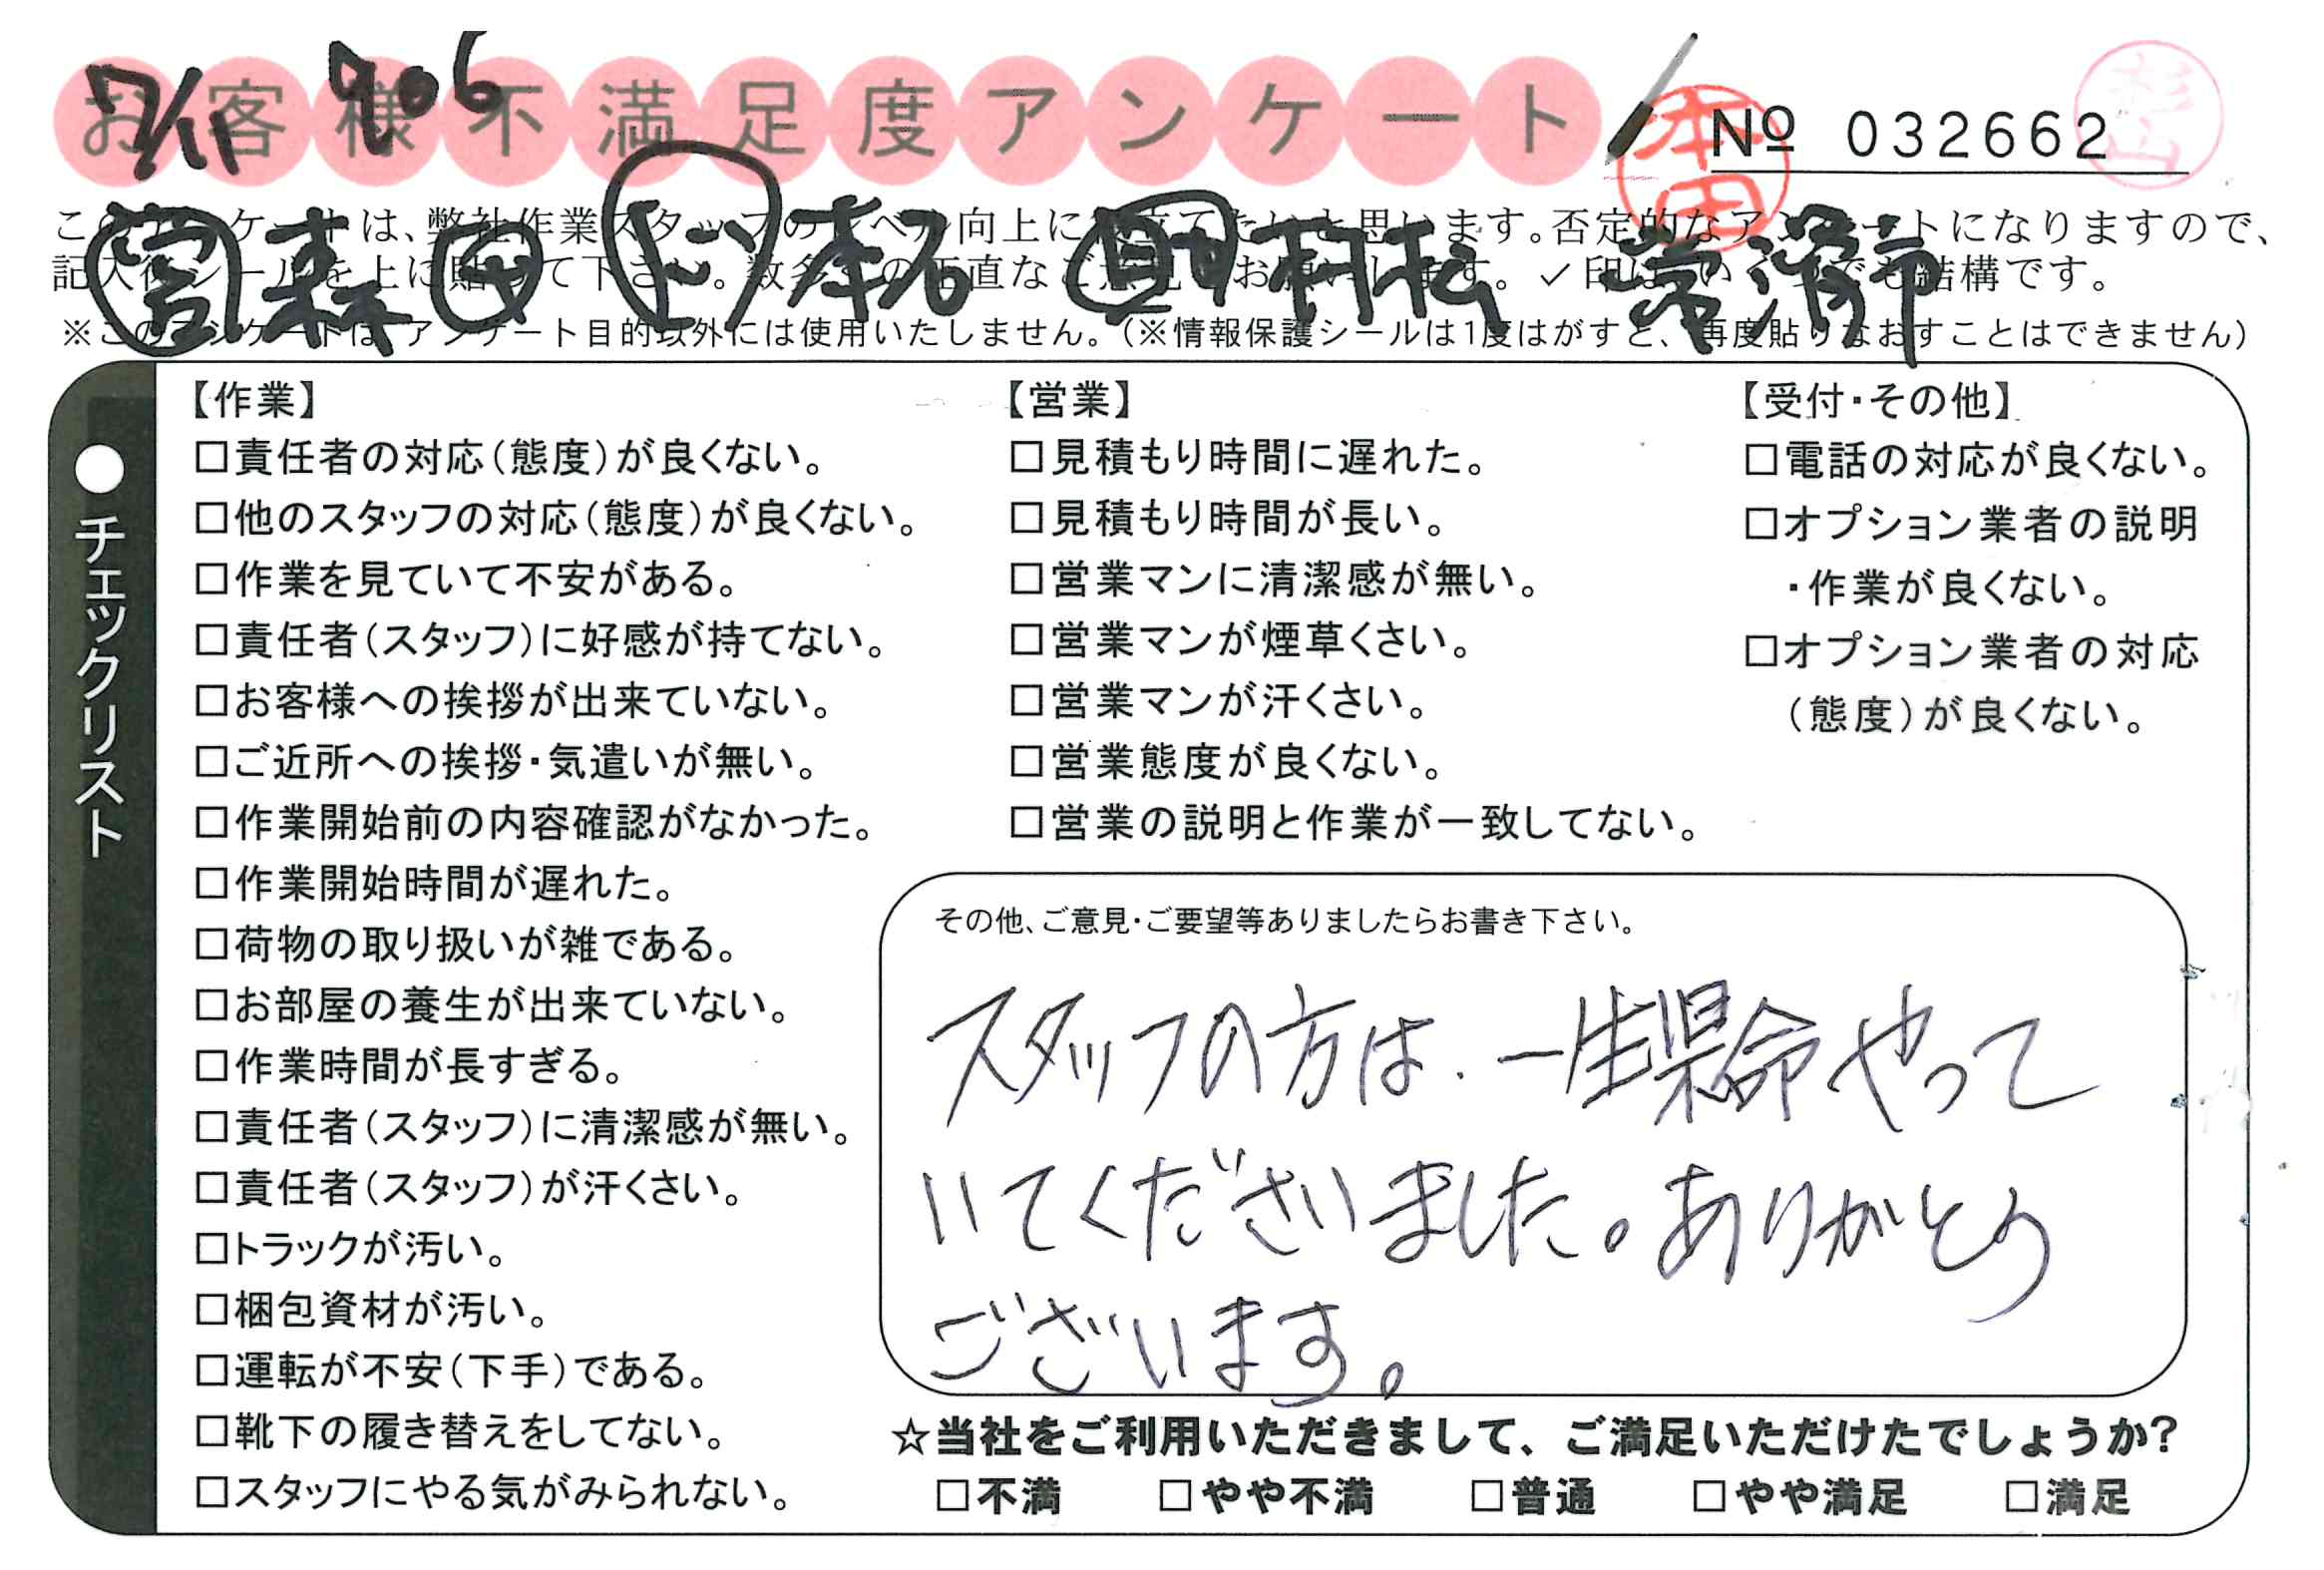 7/11 906
お客様不満足度アンケート
本田
№ 032662
杉山
このアンケートは、弊社作業スタッフのレベル向上に役立てたいと思います。否定的なアンケートになりますので、
記入後シールを上に貼って下さい。数多くの正直なご意見をお願いします。✓印はいくつでも結構です。
営 森 村松 常滑市
※このアンケートは、アンケート目的以外には使用いたしません。（※情報保護シールは1度はがすと、再度貼りなおすことはできません）
●チェックリスト
【作業】
□責任者の対応（態度）が良くない。
□他のスタッフの対応（態度）が良くない。
□作業を見ていて不安がある。
□責任者（スタッフ）に好感が持てない。
□お客様への挨拶が出来ていない。
□ご近所への挨拶・気遣いが無い。
□作業開始前の内容確認がなかった。
□作業開始時間が遅れた。
□荷物の取り扱いが雑である。
□お部屋の養生が出来ていない。
□作業時間が長すぎる。
□責任者（スタッフ）に清潔感が無い。
□責任者（スタッフ）が汗くさい。
□トラックが汚い。
□梱包資材が汚い。
□運転が不安（下手）である。
□靴下の履き替えをしてない。
□スタッフにやる気がみられない。
【営業】
□見積もり時間に遅れた。
□見積もり時間が長い。
□営業マンに清潔感が無い。
□営業マンが煙草くさい。
□営業マンが汗くさい。
□営業態度が良くない。
□営業の説明と作業が一致してない。
【受付・その他】
□電話の対応が良くない。
□オプション業者の説明
・作業が良くない。
□オプション業者の対応
（態度）が良くない。
その他、ご意見・ご要望等ありましたらお書き下さい。
スタッフの方は、一生県命やって
いてくださいました。ありがとう
ございます。
☆当社をご利用いただきまして、ご満足いただけたでしょうか？
□不満 □やや不満 □普通 □やや満足 □満足